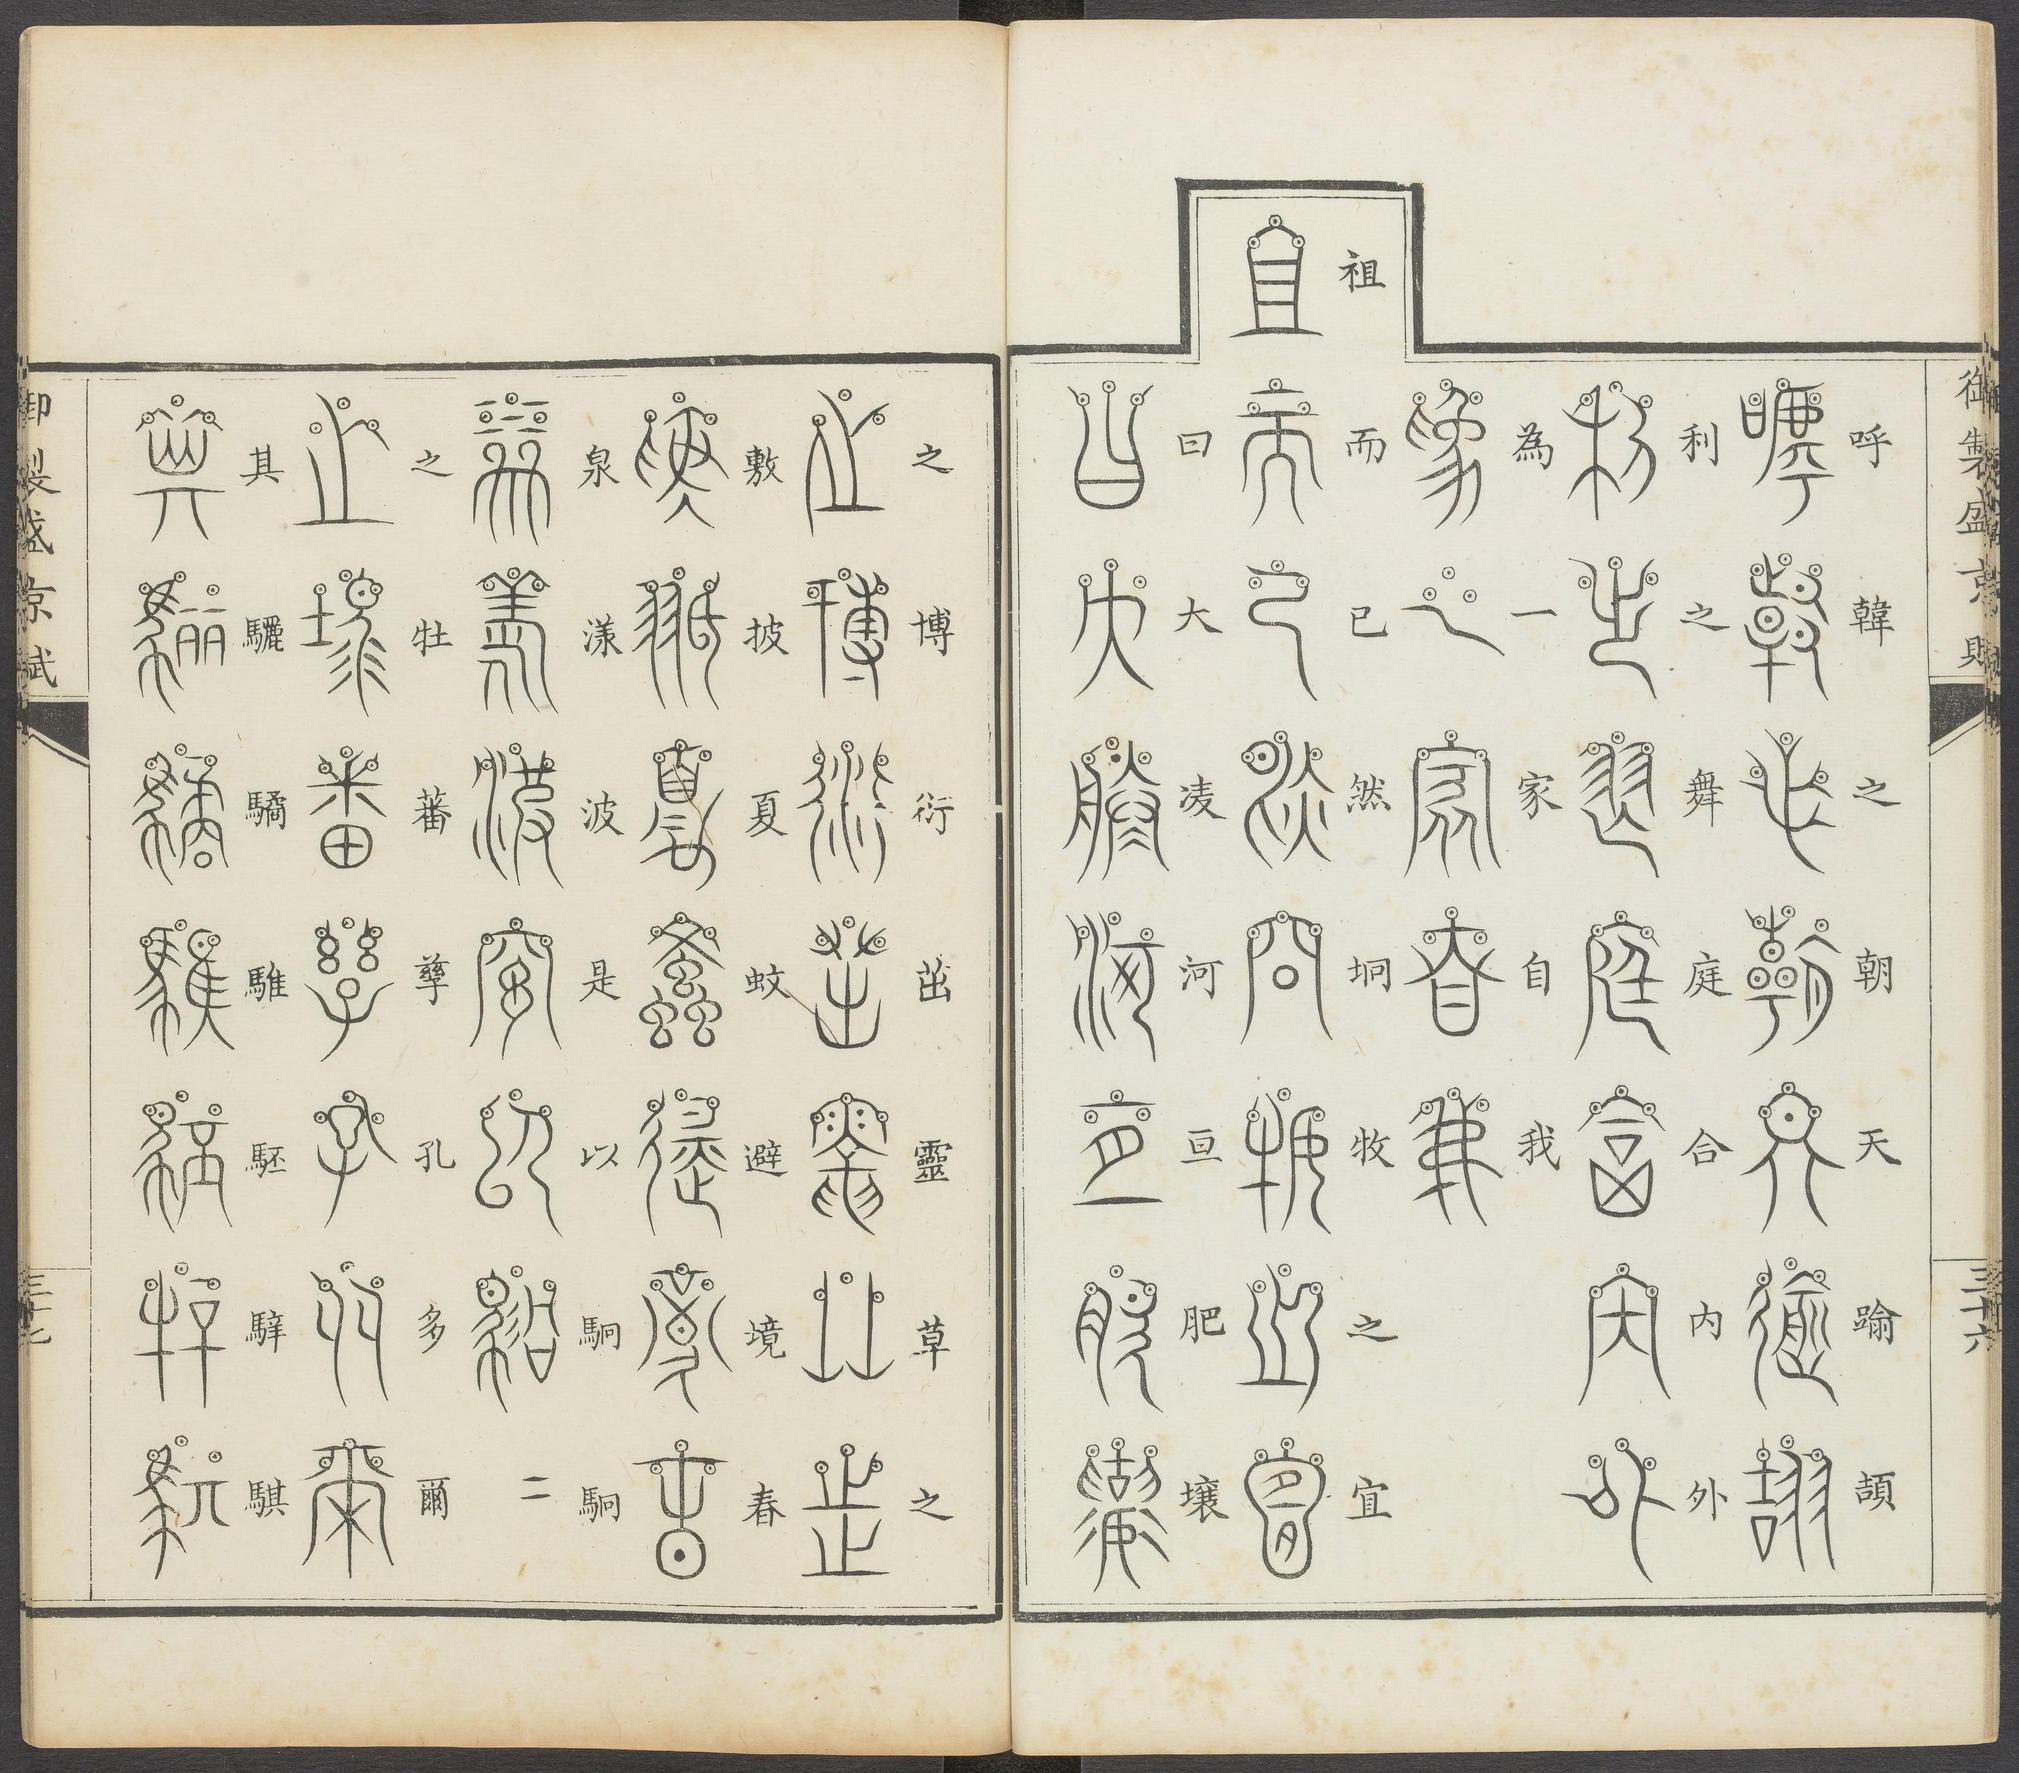 御製盛京賦
三十六
呼韓之朝天踰頡
利之舞庭合內外
為一家自我
祖而已然坰牧之宜
曰大凌河亘肥壤
之博衍茁靈草之
敷披夏蚊避境春
泉漾波是以駉駉
之牡蕃孳孔多爾
其驪驈騅駓騂騏
御製盛京賦
三十七